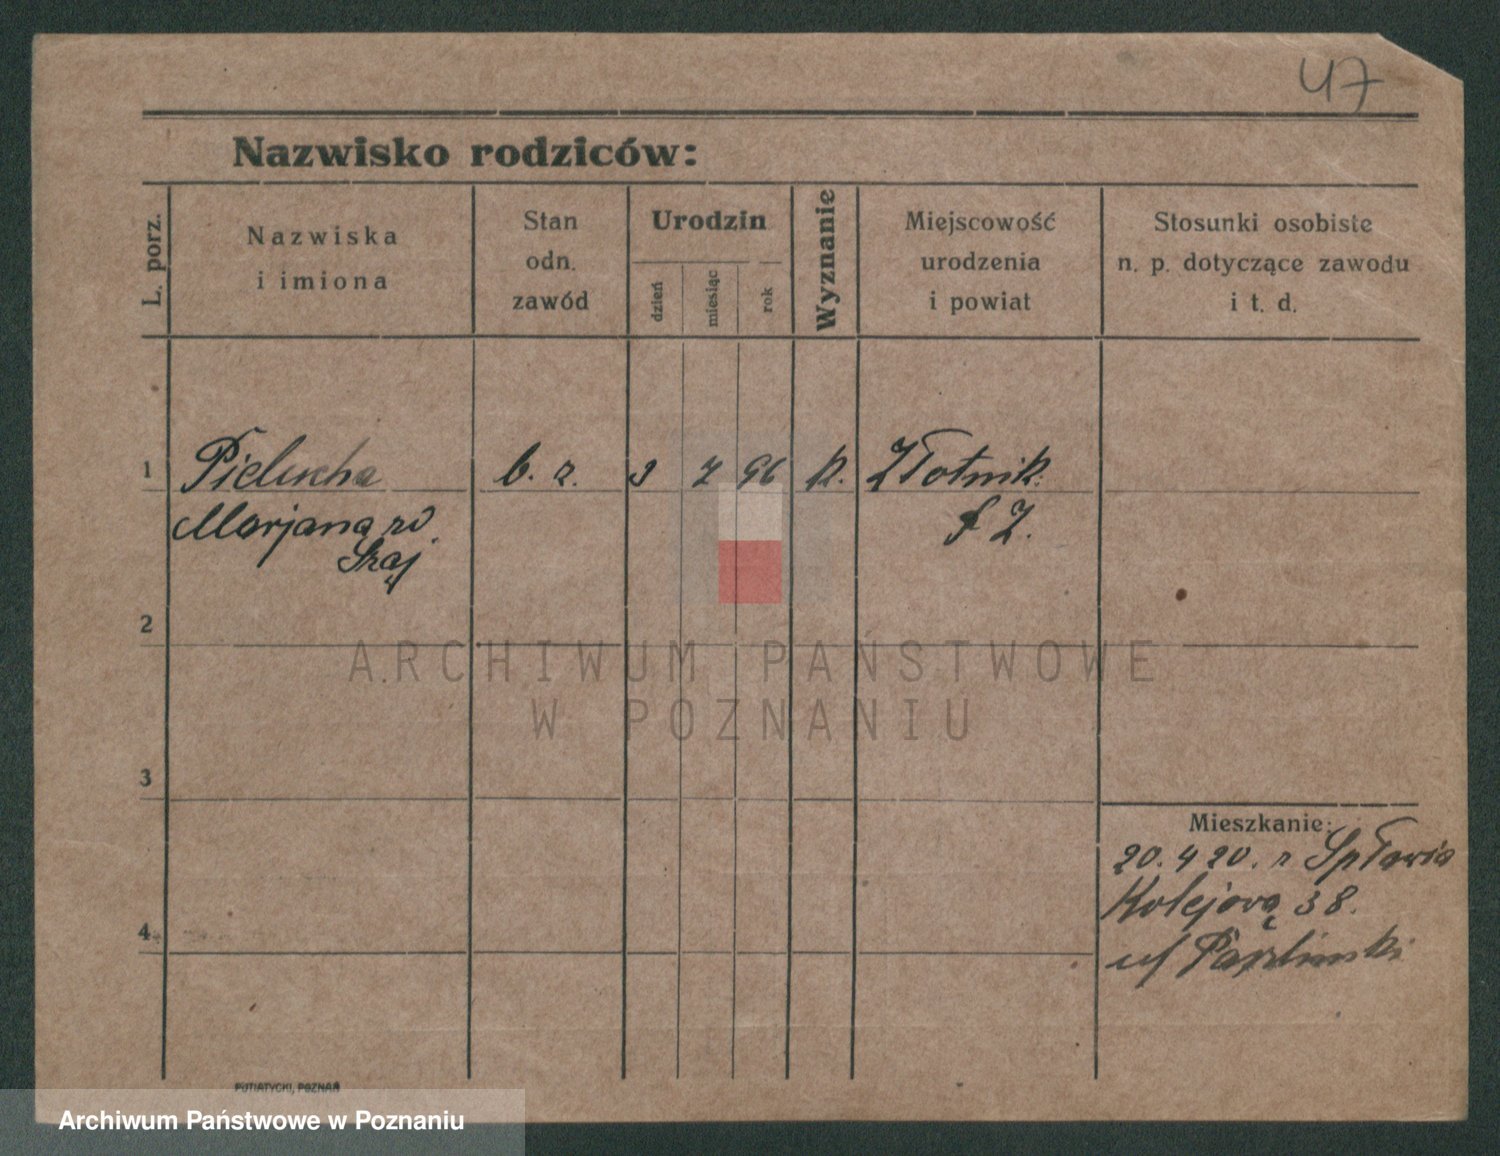 47
Nazwisko rodziców:
L. porz.
Nazwiska
i imiona
Stan
odn.
zawód
Urodzin
dzień
miesiąc
rok
Wyznanie
Miejscowość
urodzenia
i powiat
Stosunki osobiste
n. p. dotyczące zawodu
i t. d.
1
Pielucha b. z. 3 7 96 k. Złotnik.
Marjana
2
3
4
Mieszkanie:
20. 4 20. z Spławia
Kolejowa 38.
ARCHIWUM PAŃSTWOWE
W POZNANIU
PUTIATYCKI, POZNAŃ
Archiwum Państwowe w Poznaniu